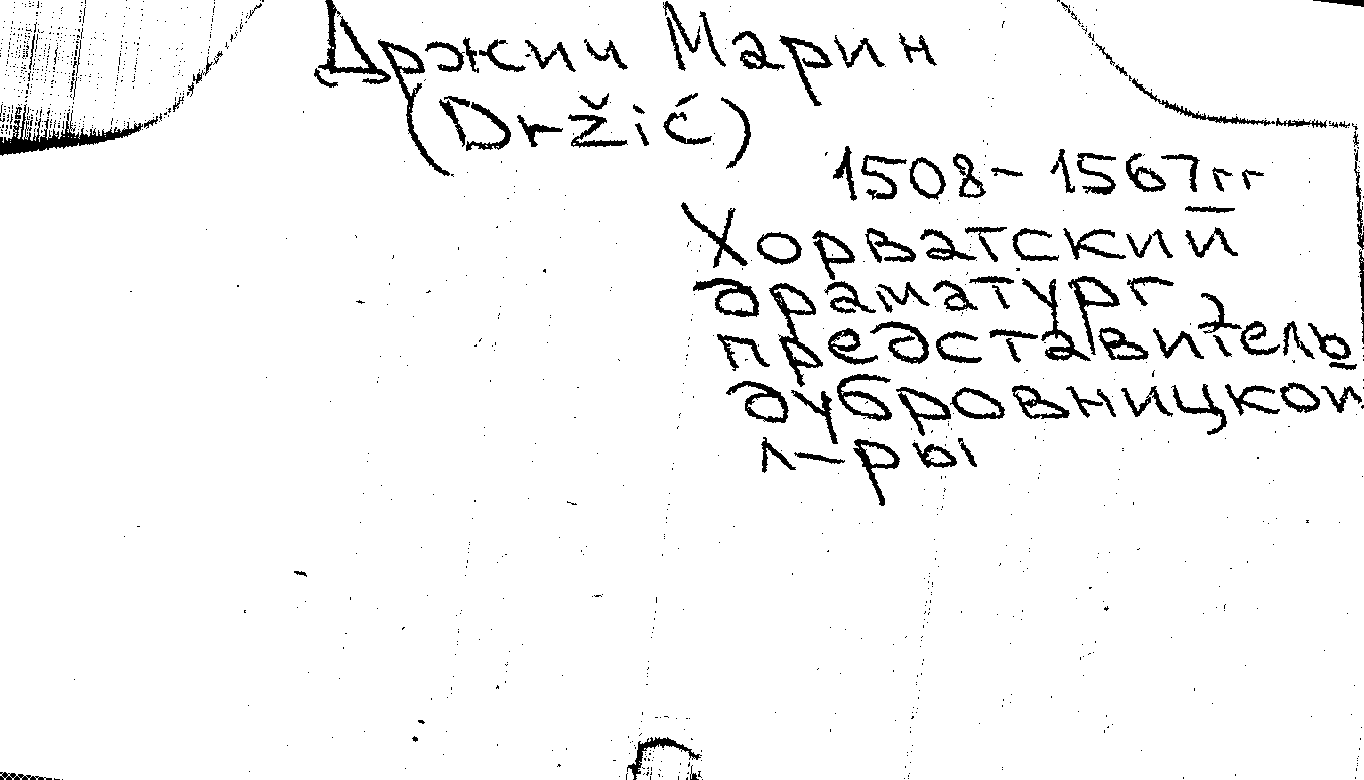 Држич Марин
(Držić)
1508-1567гг
Хорватский
драматург,
представитель
дубровницкой
л-ры